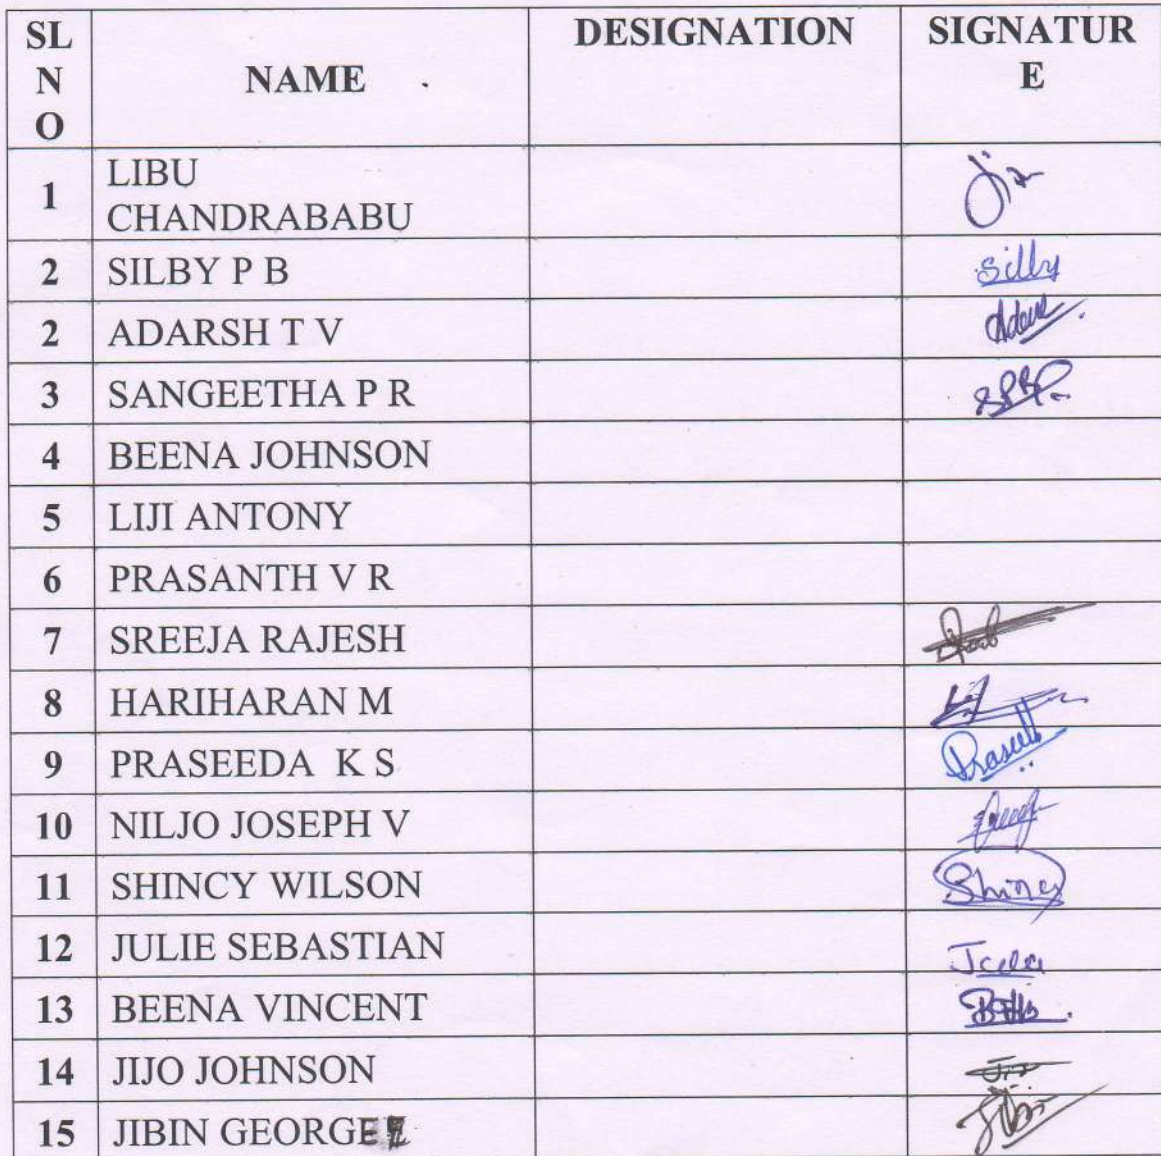 SL
N
O
NAME
DESIGNATION
SIGNATUR
E
1 LIBU
CHANDRABABU
2 SILBY P B Silby
2 ADARSH T V
3 SANGEETHA P R
4 BEENA JOHNSON
5 LIJI ANTONY
6 PRASANTH V R
7 SREEJA RAJESH
8 HARIHARAN M
9 PRASEEDA K S
10 NILJO JOSEPH V
11 SHINCY WILSON Shincy
12 JULIE SEBASTIAN
13 BEENA VINCENT
14 JIJO JOHNSON
15 JIBIN GEORGE